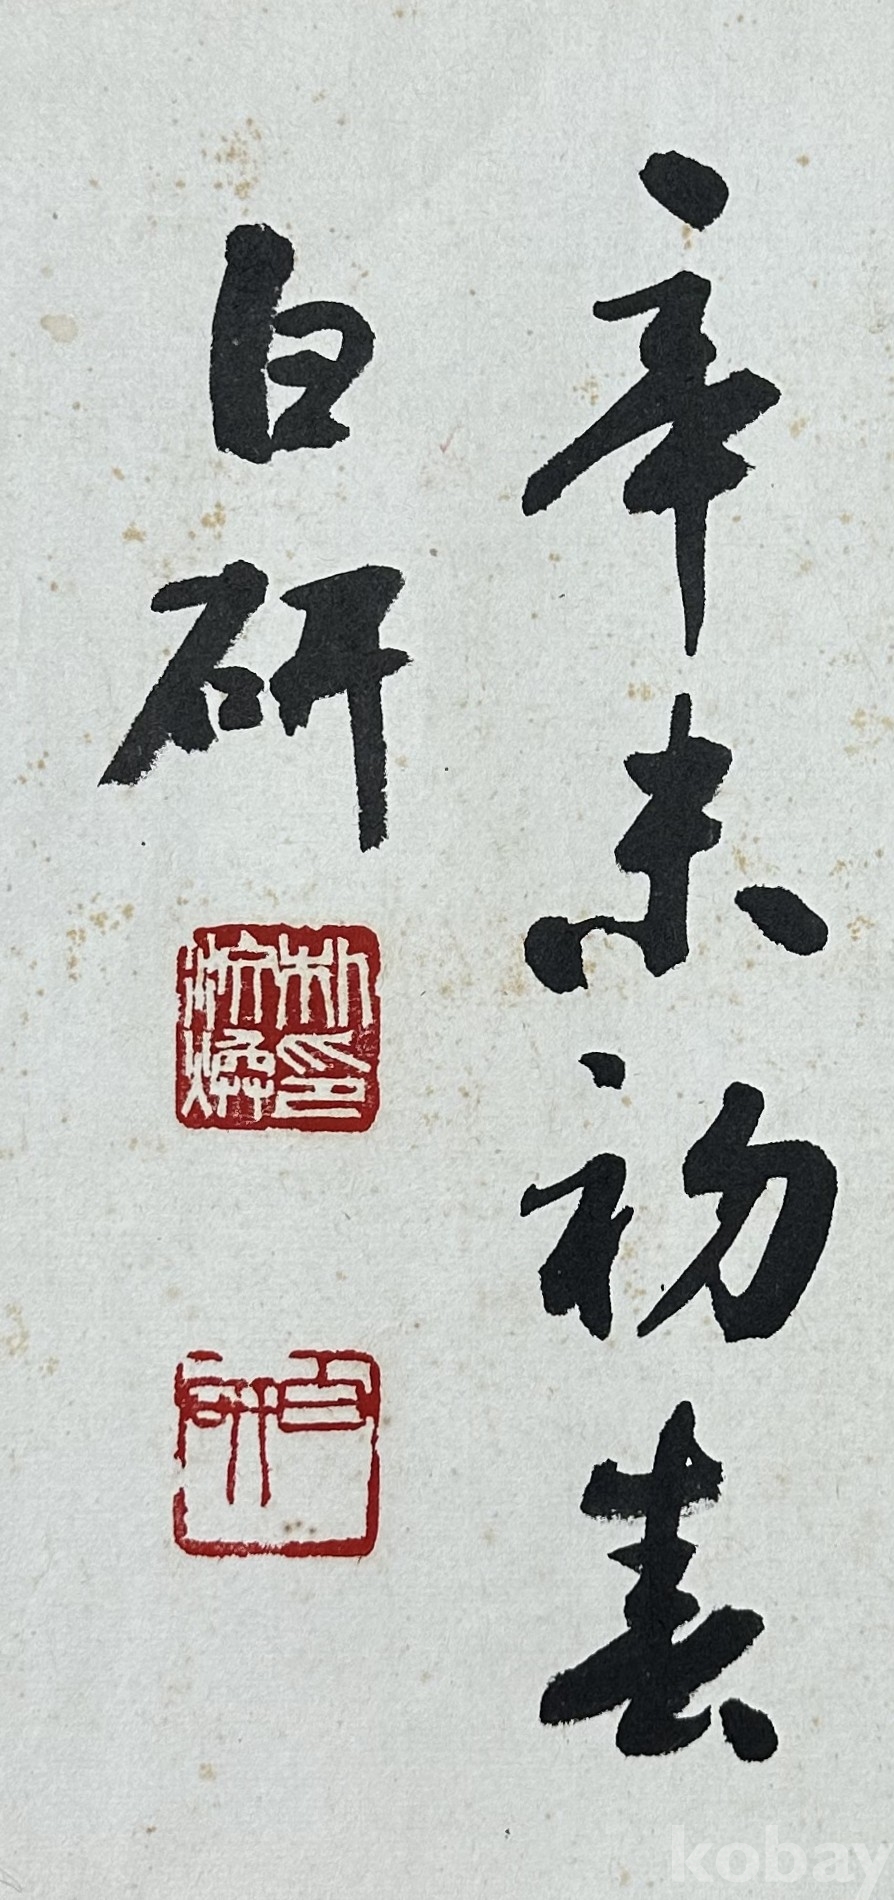 辛未初春
白研
白研
kobay